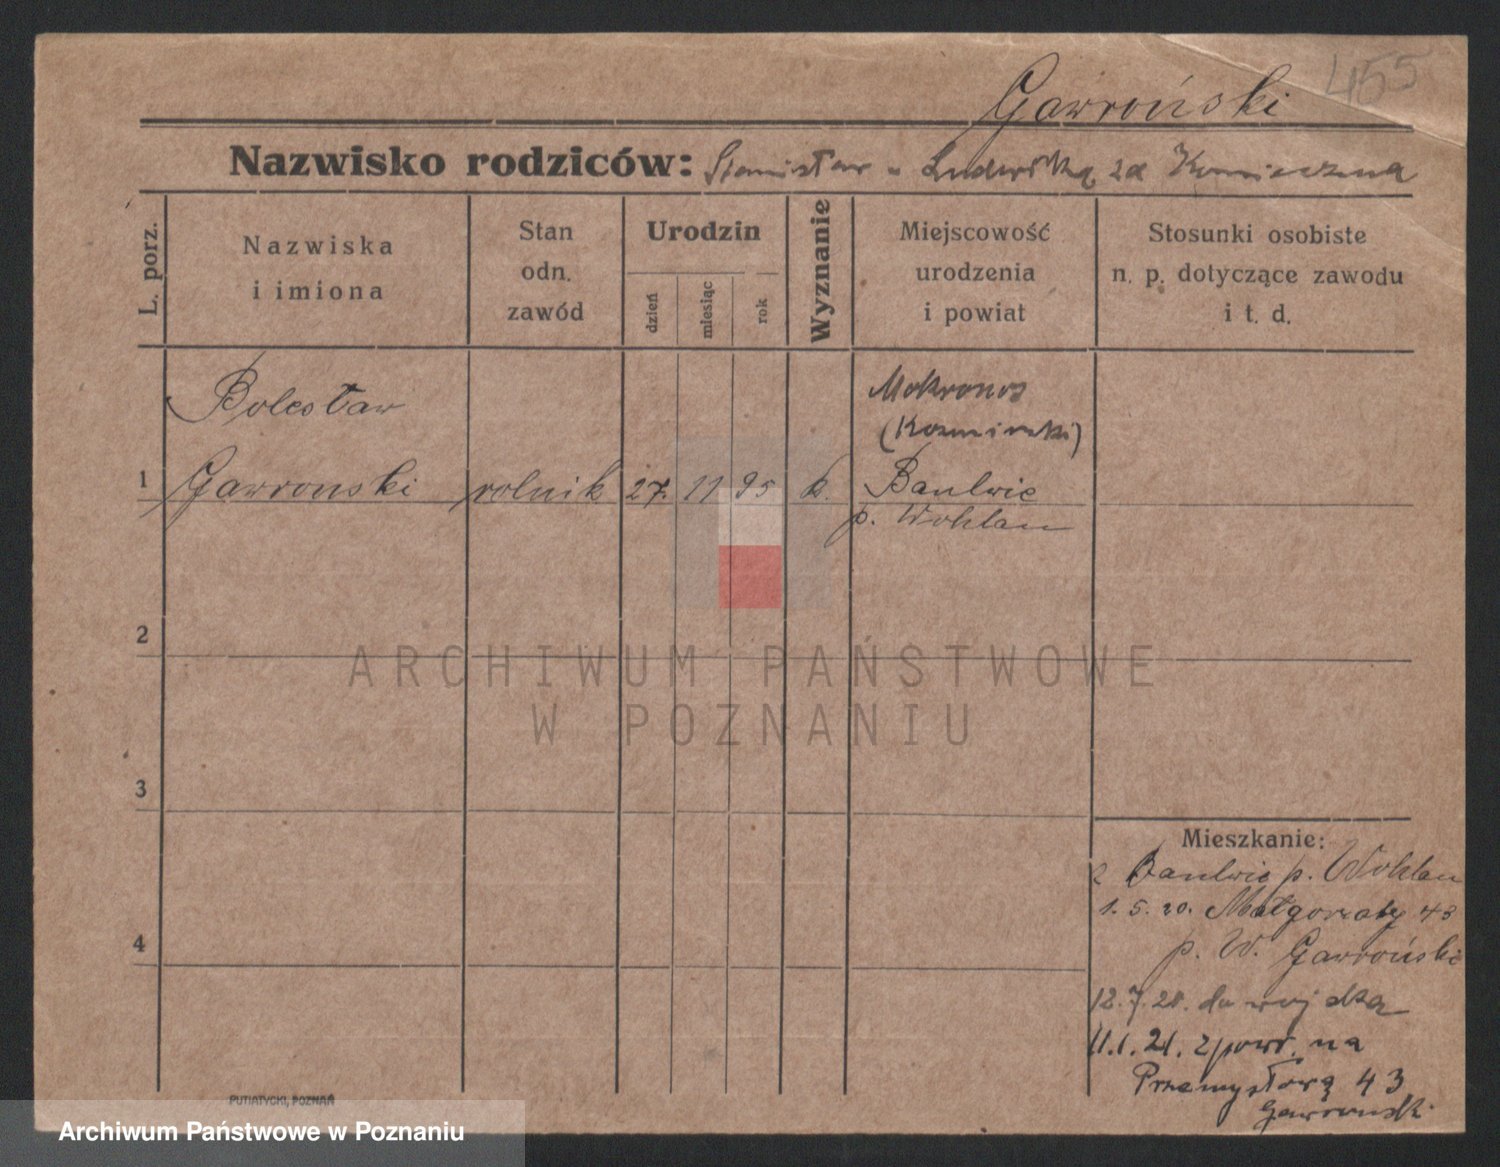 455
Gawroński
Nazwisko rodziców: Stanisław u Ludwiką zd Konieczna
L. porz.
Nazwiska
i imiona
Stan
odn.
zawód
Urodzin
dzień
miesiąc
rok
Wyznanie
Miejscowość
urodzenia
i powiat
Stosunki osobiste
n. p. dotyczące zawodu
i t. d.
Bolesław
Mokronos
(Kozmiński)
1 Gawronski rolnik 27. 11 95 k. Baulwie
p. Wohlau
2
ARCHIWUM PAŃSTWOWE
W POZNANIU
3
Mieszkanie:
z Baulwie p. Wohlau
1. 5. 20. Małgorzaty 43
4
p. W. Gawroński
12. 7. 20. do wojska
11. 1. 21. z powr. na
Przemysłową 43
Gawronski
PUTIATYCKI, POZNAŃ
Archiwum Państwowe w Poznaniu